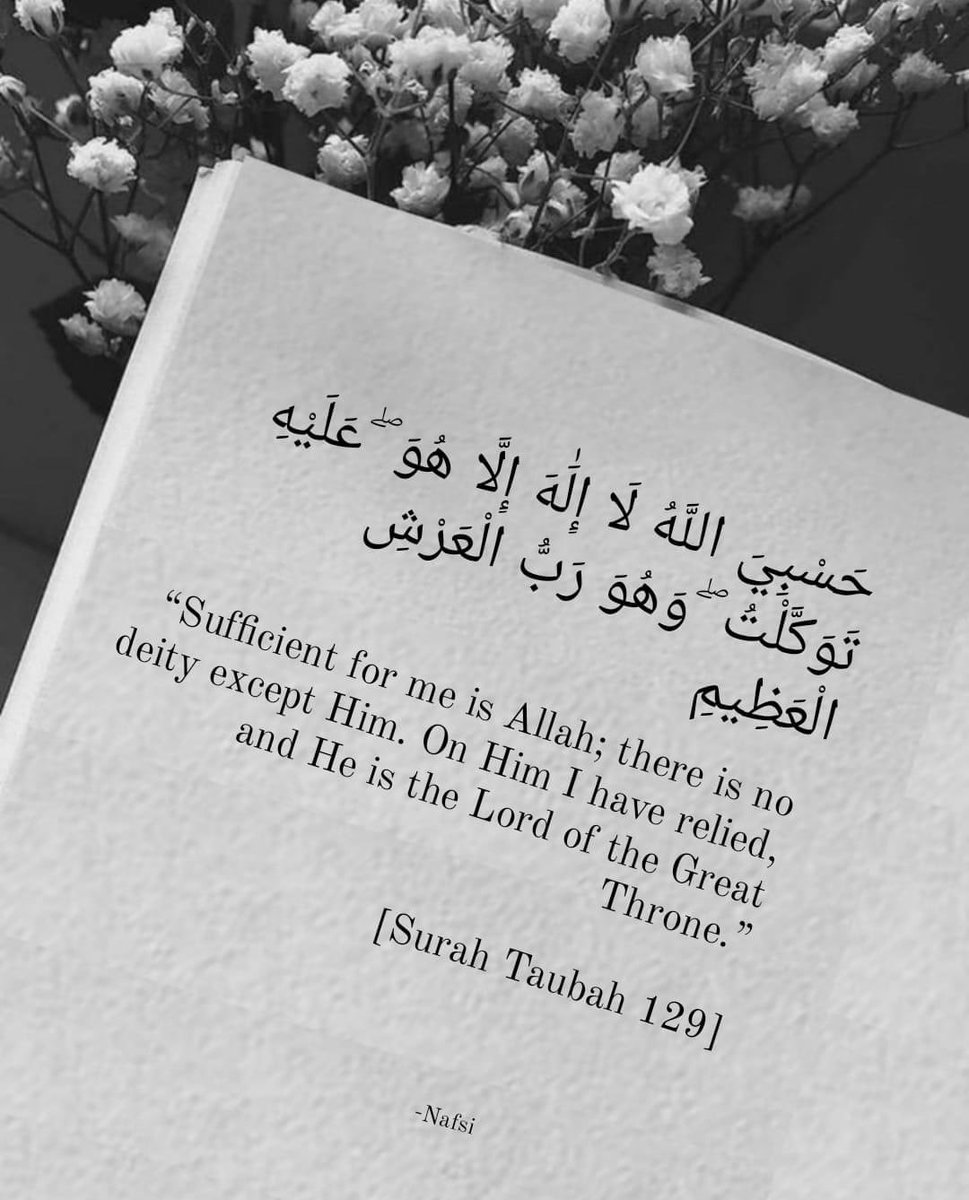 حَسْبِيَ اللَّهُ لَا إِلَٰهَ إِلَّا هُوَ ۖ عَلَيْهِ
تَوَكَّلْتُ ۖ وَهُوَ رَبُّ الْعَرْشِ
الْعَظِيمِ
“Sufficient for me is Allah; there is no
deity except Him. On Him I have relied,
and He is the Lord of the Great
Throne.”
[Surah Taubah 129]
-Nafsi